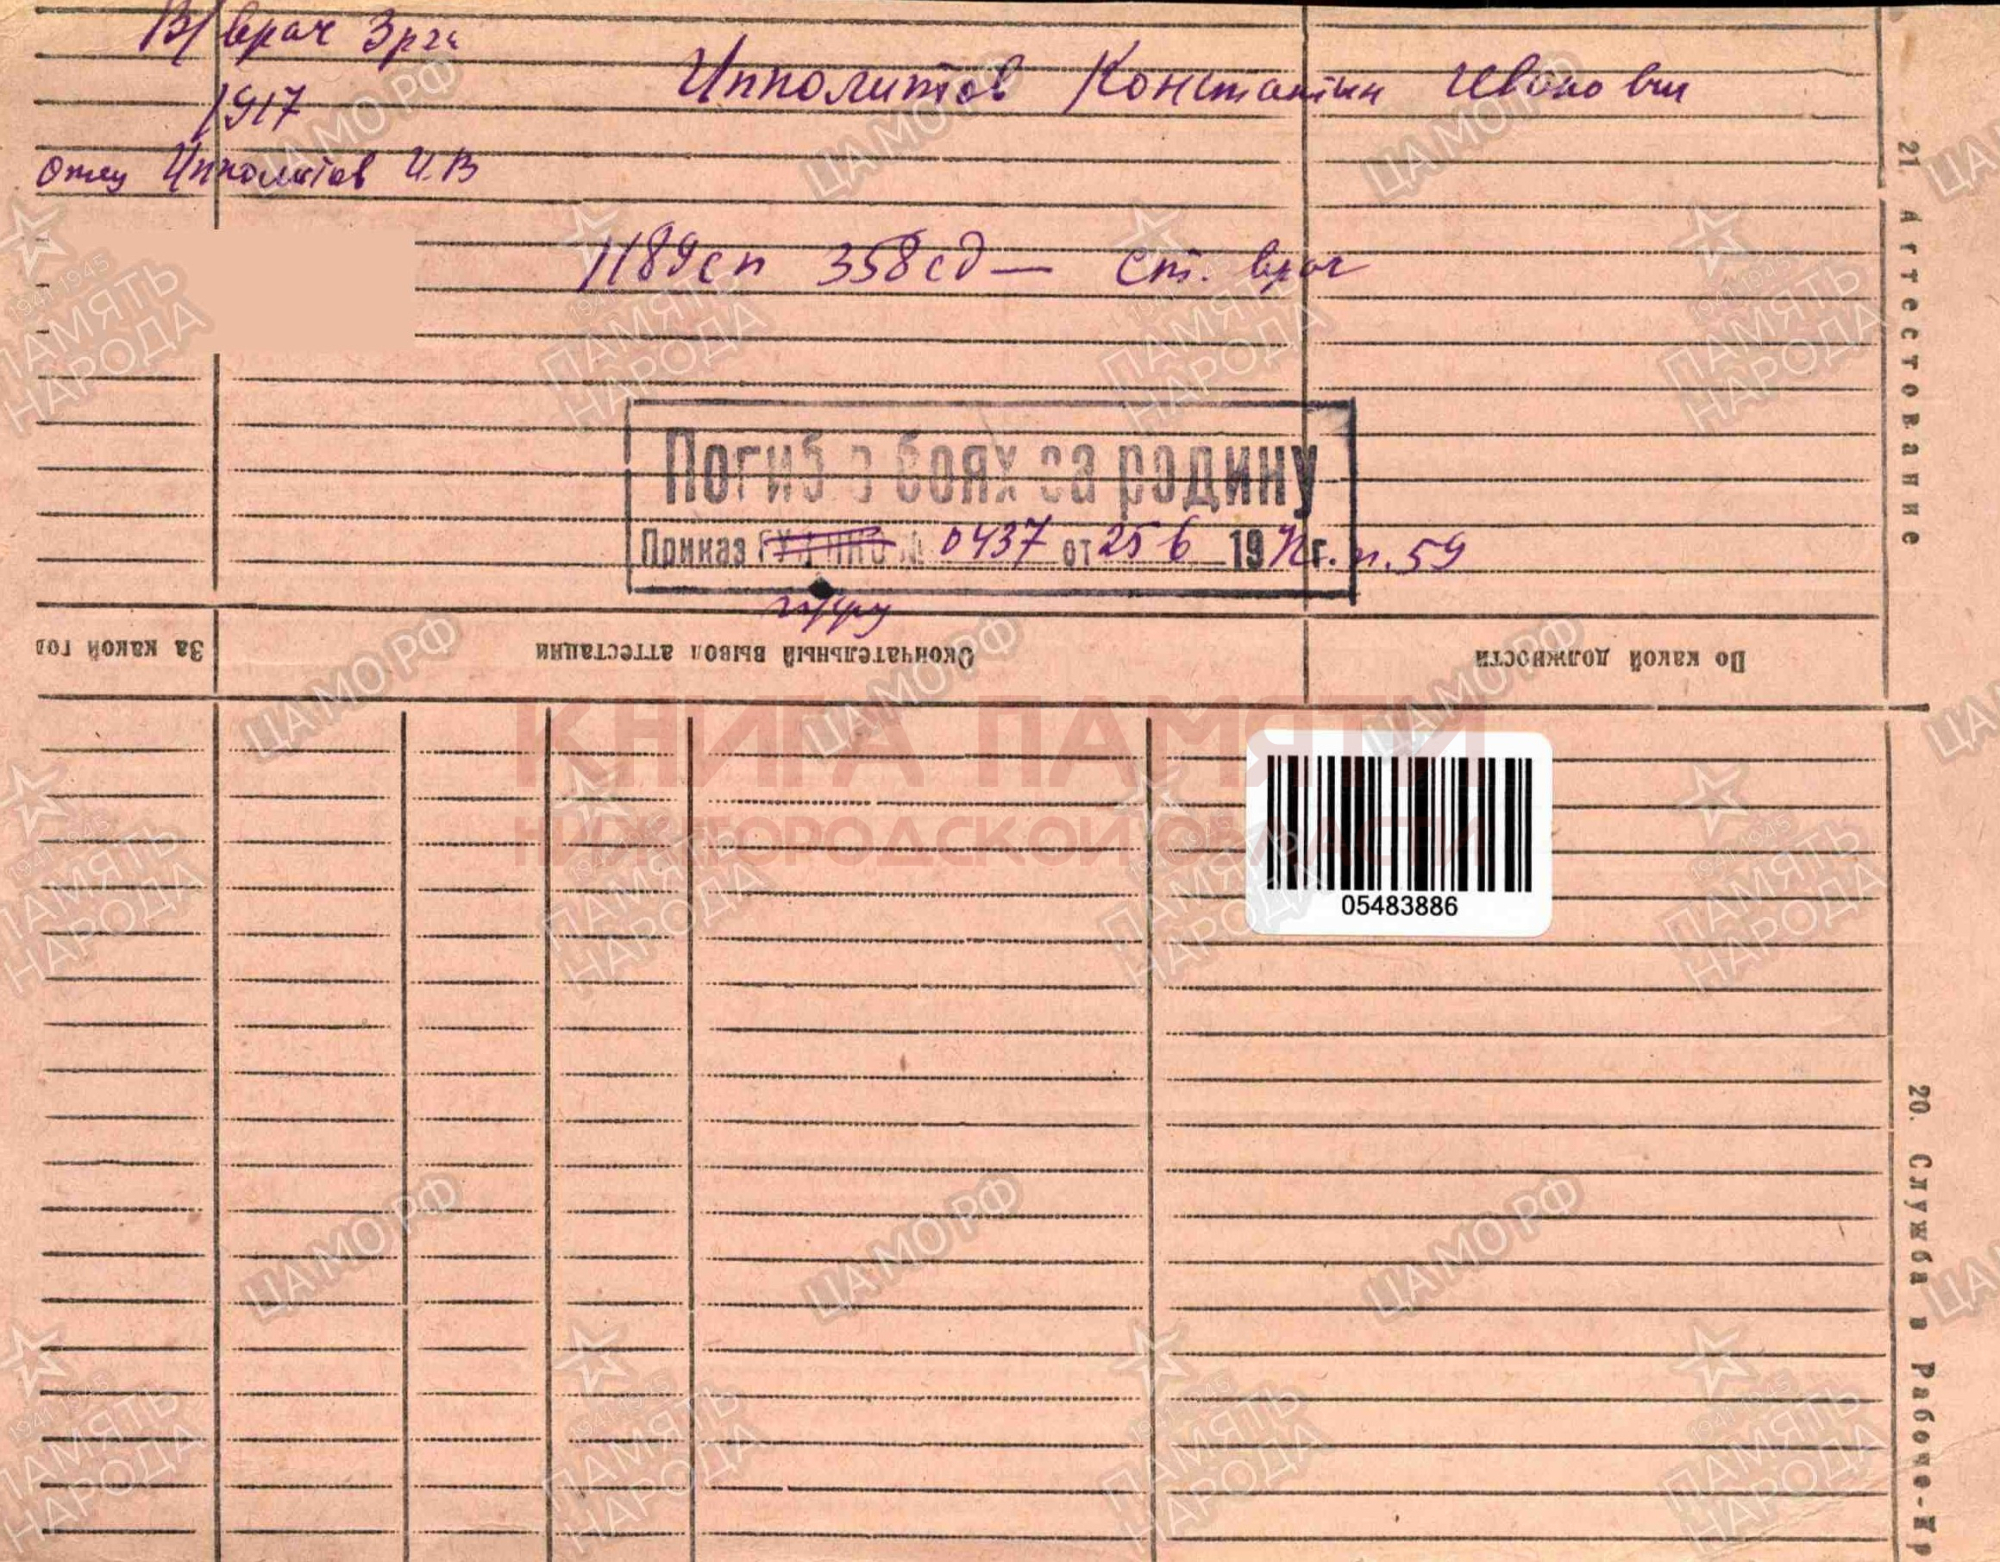 В/врач 3 рга
Ипполитов Константин Иванович
1917
отец Ипполитов И.В
1189сп 358сд — ст. врач
Погиб в боях за родину
Приказ ГУФ НКО № 0437 от 25 6 1942г. п. 59
21. Аттестование
За какой год
Окончательный вывод аттестации
По какой должности
КНИГА ПАМЯТИ
НИЖЕГОРОДСКОЙ ОБЛАСТИ
05483886
20. Служба в Рабоче-Кр
ЦАМО РФ
1941 1945
ПАМЯТЬ
НАРОДА